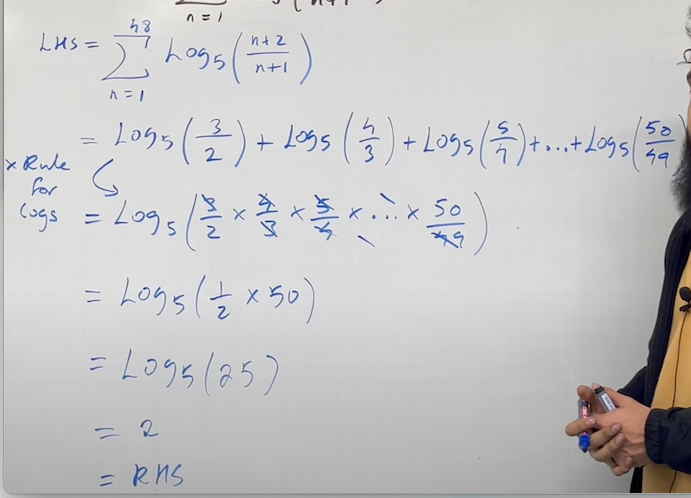 n = 1
LHS = 48 ∑ n = 1 Log5 ( n+2 / n+1 )
= Log5 ( 3/2 ) + Log5 ( 4/3 ) + Log5 ( 5/4 ) + ... + Log5 ( 50/49
× Rule for Logs
= Log5 ( 3/2 × 4/3 × 5/4 × ... × 50/49 )
= Log5 ( 1/2 × 50 )
= Log5 (25)
= 2
= RHS